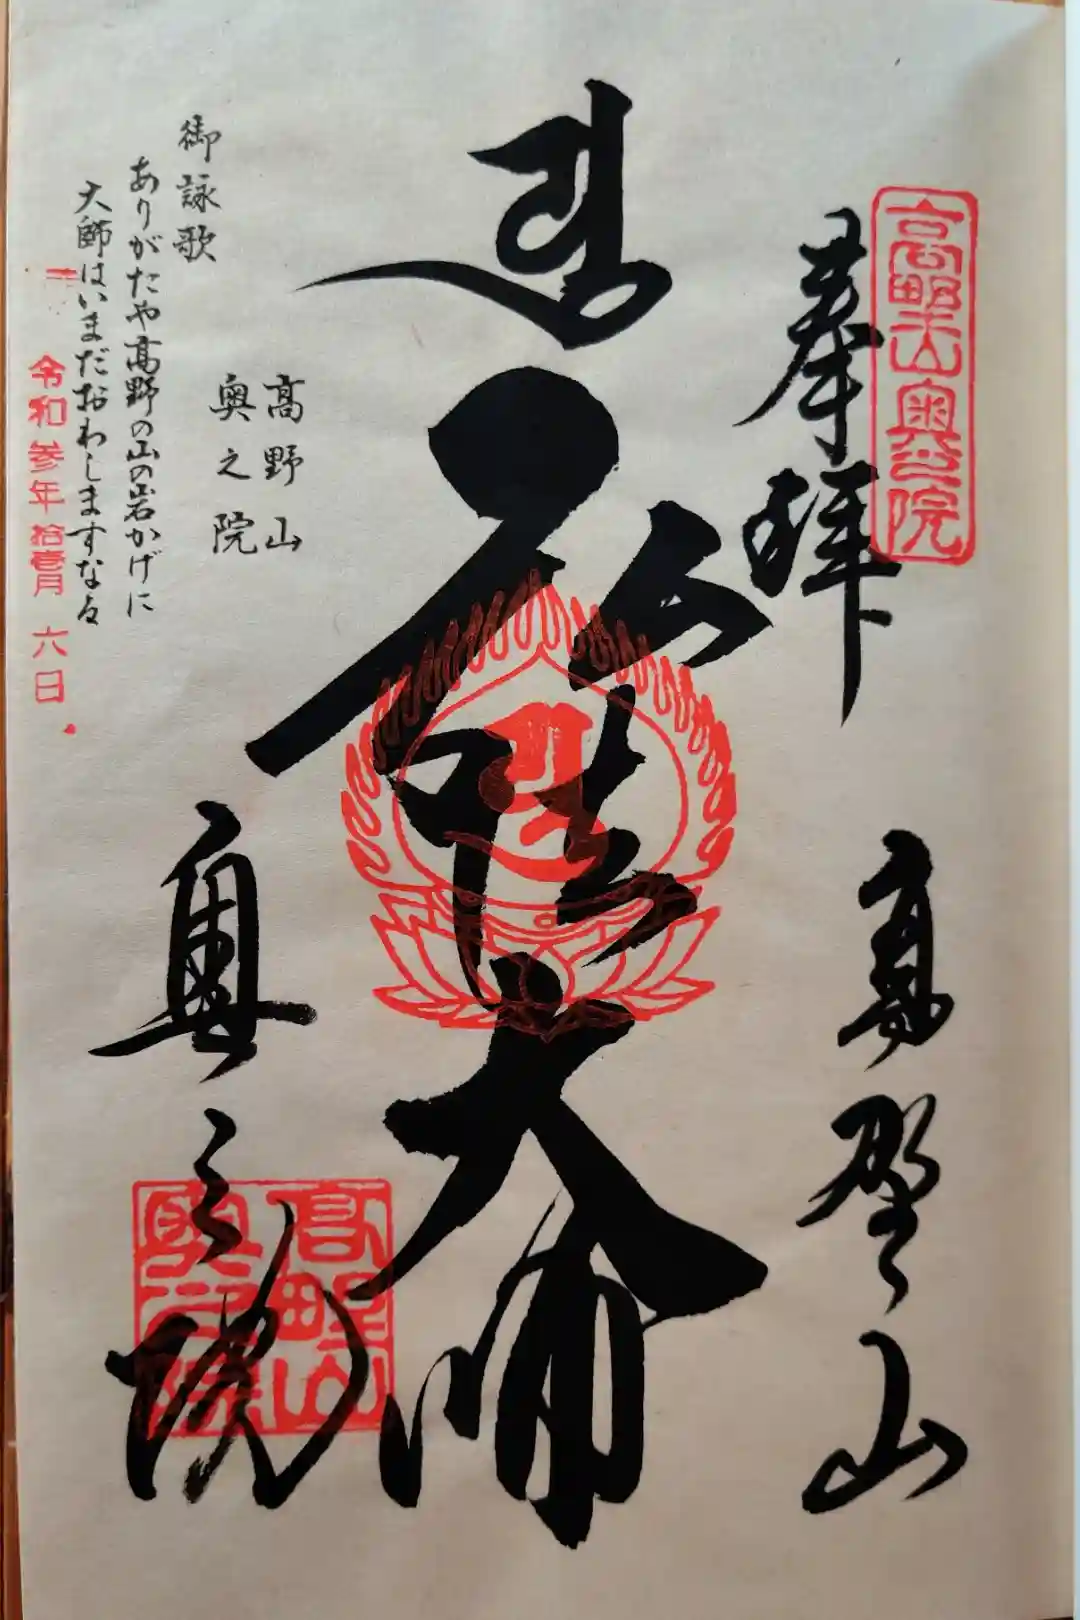 高野山奥之院
奉拝
高野山
弘法大師
高野山
奥之院
御詠歌
ありがたや高野の山の岩かげに
大師はいまだおわしますなる
令和参年拾壱月六日
奥之院
高野山
奥之院